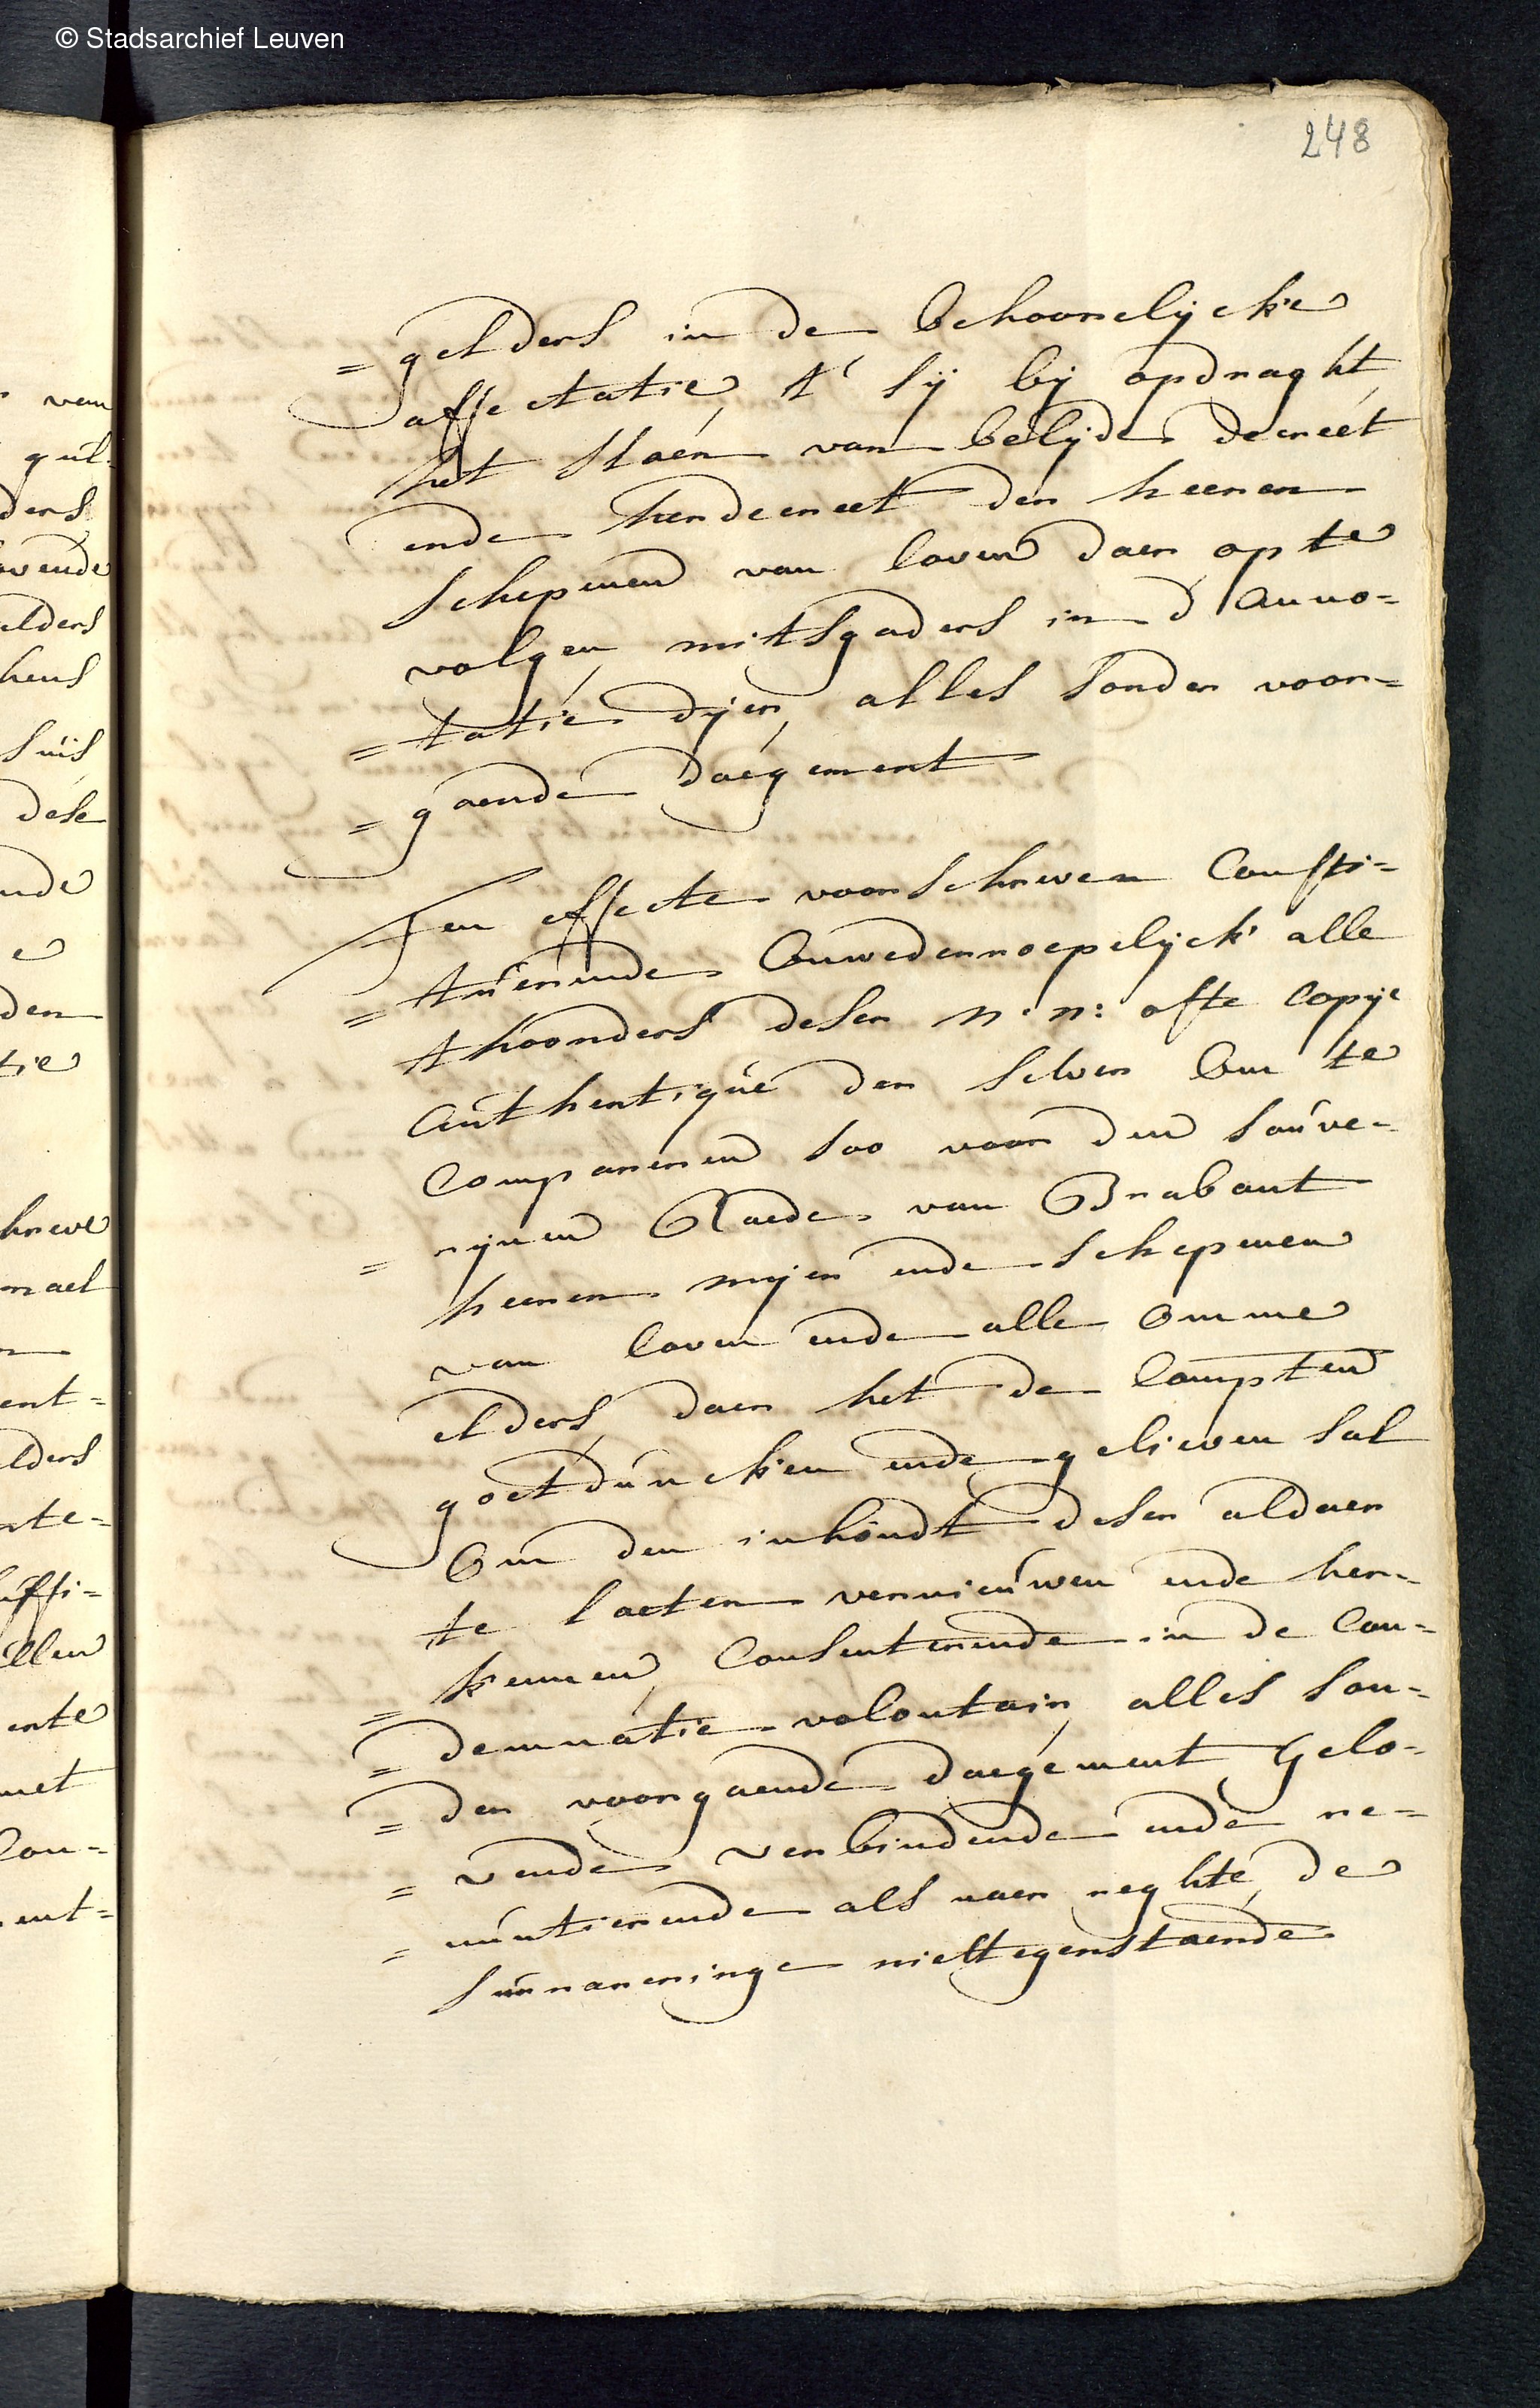 © Stadsarchief Leuven
248
= gelders in de behoorelijcke
affectatie, t' sij bij opdraght,
het slaen van belijde decreet
ende herdecreet der heeren
schepenen van loven daer op te
volgen, mitsgaders in d'anno=
= tatie dijer, alles sonder voor=
= gaende daegement
Ten effecte voorschreven consti=
= tuerende onwederroepelijck alle
thoonders deser N: N: ofte copije
authentique der selver om te
compareren soo voor den souve=
= rijnen Raede van Brabant
heeren meijer ende schepenen
van loven ende alle omme
elders, daer het de compten
goetduncken ende gelieven sal
om den inhoudt deser aldaer
te laeten vernieuwen ende her=
= kennen, consenterende in de con=
= demnatie volontair, alles son=
= der voorgaende daegement, gelo=
= vende verbindende ende re=
= nuntierende als naer reghte, de
surrareringe niettegenstaende
van
gul=
ders
ovende
elders
hens
suis
dese
ende
e
der
tie
hreve
mael
ent=
lders
ate=
uffi=
illen
ente
met
con=
ment=